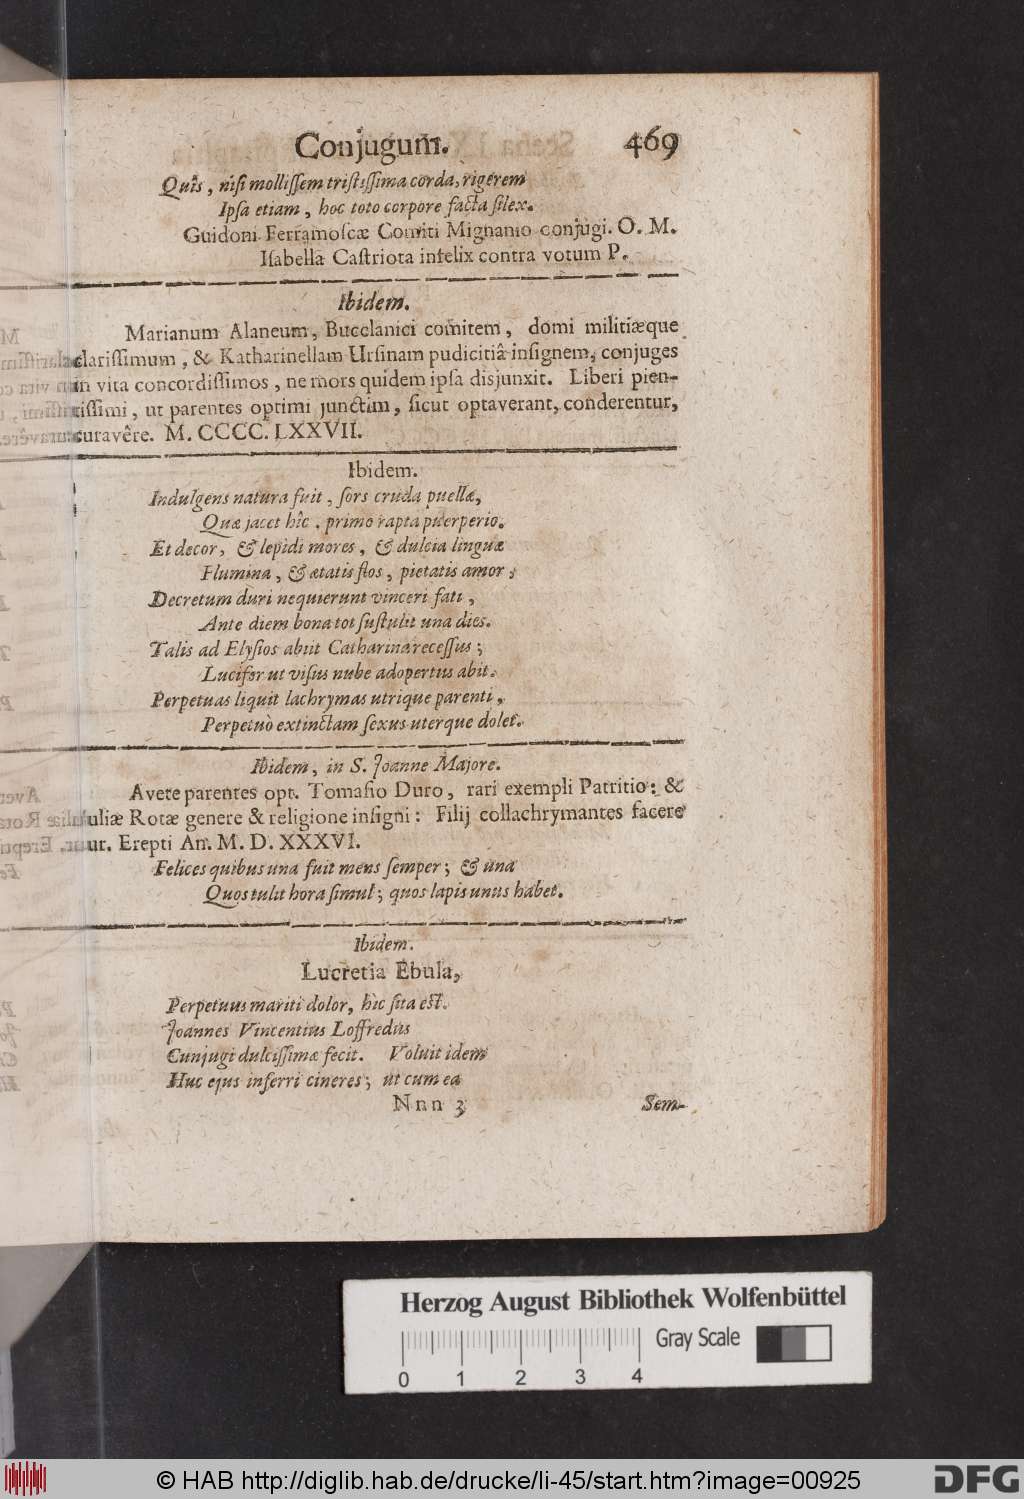 Conjugum. 469
Quis, nisi mollissem tristissima corda, rigerem
Ipsa etiam, hoc toto corpore facta silex.
Guidoni Ferramoscæ Comiti Mignanio conjugi. O. M.
Isabella Castriota infelix contra votum P.
Ibidem.
Marianum Alaneum, Bucclanici comitem, domi militiæque
clarissimum, & Katharinellam Ursinam pudicitiâ insignem, conjuges
in vita concordissimos, ne mors quidem ipsa disjunxit. Liberi pien-
tissimi, ut parentes optimi junctim, sicut optaverant, conderentur,
curavêre. M. CCCC. LXXVII.
Ibidem.
Indulgens natura fuit, sors cruda puellæ,
Quæ jacet hîc. primo rapta puerperio.
Et decor, & lepidi mores, & dulcia linguæ
Flumina, & ætatis flos, pietatis amor,
Decretum duri nequierunt vinceri fati,
Ante diem bona tot sustulit una dies.
Talis ad Elysios abiit Catharina recessus;
Lucifer ut visus nube adopertus abit.
Perpetuas liquit lachrymas utrique parenti,
Perpetuò extinctam sexus uterque dolet.
Ibidem, in S. Joanne Majore.
Avete parentes opt. Tomasio Duro, rari exempli Patritio: &
Juliæ Rotæ genere & religione insigni: Filij collachrymantes facere
ur. Erepti An. M. D. XXXVI.
Felices quibus una fuit mens semper; & una
Quos tulit hora simul; quos lapis unus habet.
Ibidem.
Lucretia Ebula,
Perpetuus mariti dolor, hìc sita est.
Joannes Vincentius Loffredus
Cunjugi dulcissimæ fecit. Voluit idem
Huc ejus inferri cineres; ut cum ea
Nnn 3 Sem-
Herzog August Bibliothek Wolfenbüttel
Gray Scale
0 1 2 3 4
© HAB http://diglib.hab.de/drucke/li-45/start.htm?image=00925
DFG